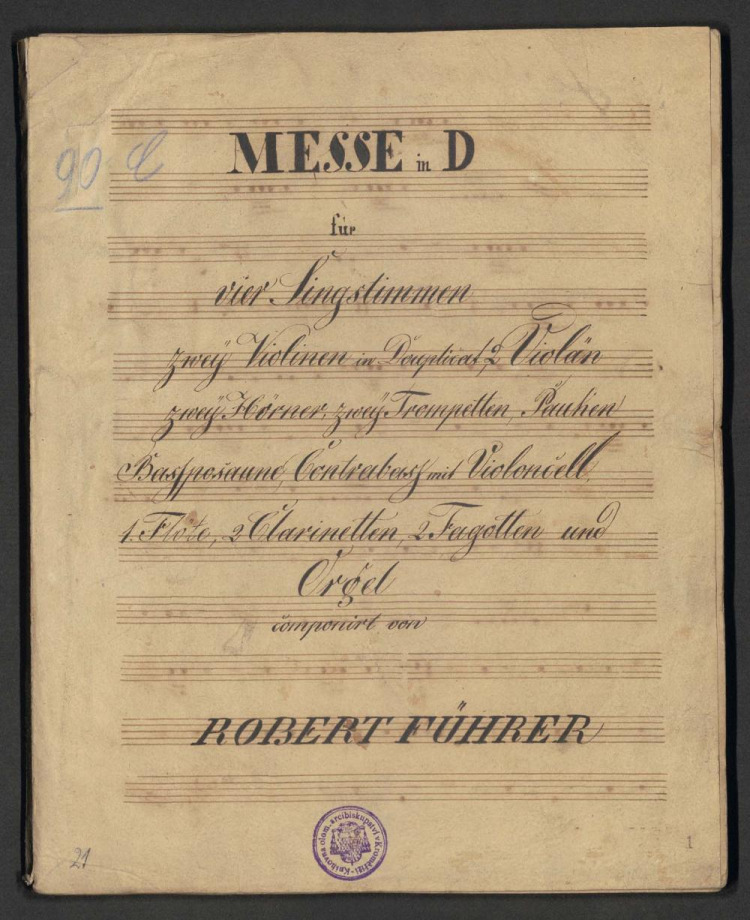 90 C
MESSE in D
für
vier Singstimmen
zwey Violinen in Duplicat, 2 Violän
zwey Hörner, zwey Trompetten, Pauken
Bassposaune, Contrabass mit Violoncell,
1. Flöte, 2 Clarinetten, 2 Fagotten und
Orgel
componirt von
ROBERT FÜHRER
Knihovna olom. arcibiskupství v Kroměříži
21
1